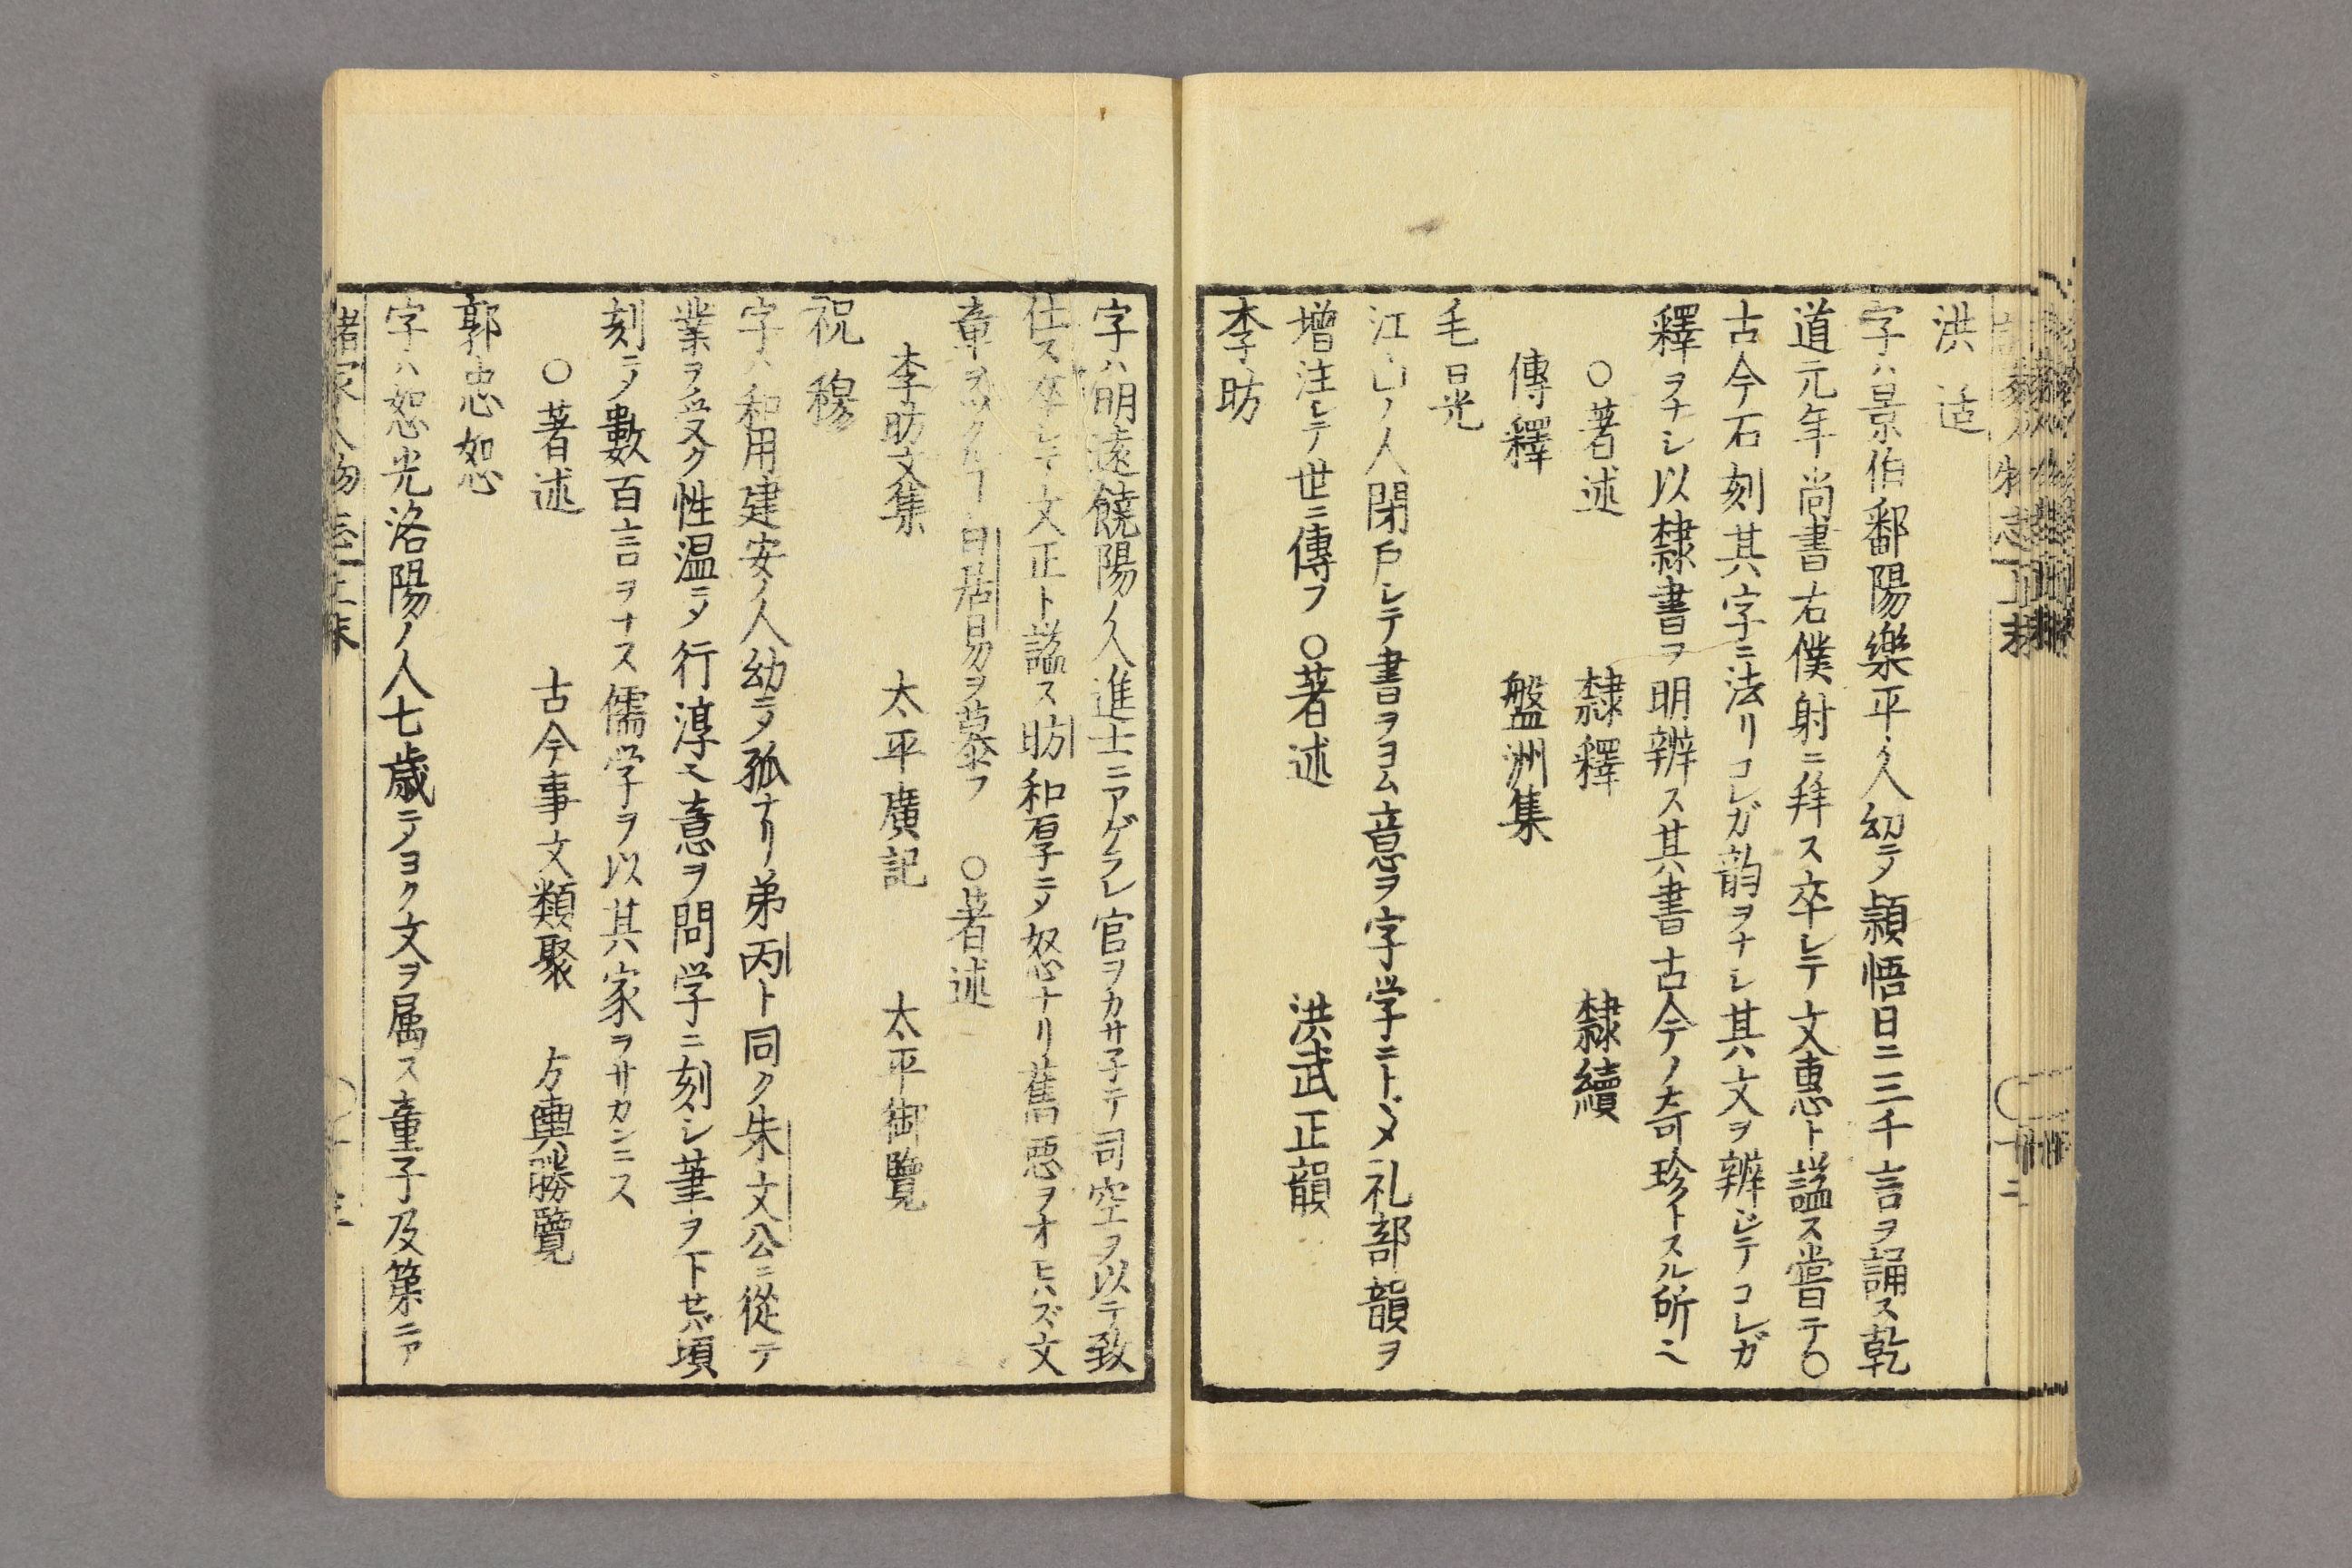 洪适
字ハ景伯鄱陽樂平ノ人幼ニ〆頴悟日ニ三千言ヲ誦ス乾
道元年尚書右僕射ニ拜ス卒レテ文惠ト謚ス嘗テ○
古今石刻其字ニ法リコレガ韵ヲナシ其文ヲ辨ジテコレガ
釋ヲナシ以隸書ヲ明辨ス其書古今ノ奇珍トスル所ニ
○著述 隸釋 隸續
傳釋 盤洲集
毛日光
江山ノ人閉戶レテ書ヲヨム意ヲ字学ニトヾメ礼部韻ヲ
增注レテ世ニ傳フ ○著述 洪武正韻
李昉
字ハ明遠饒陽ノ人進士ニアゲラレ官ヲカサ子テ司空ヲ以テ致
仕ス卒レテ文正ト謚ス昉和厚ニ〆怒ナリ舊惡ヲオモハズ文
章ヲツクルヿ白居易ヲ慕フ ○著述
李昉文集 太平廣記 太平御覽
祝穆
字ハ和用建安ノ人幼ニ〆孤ナリ弟丙ト同ク朱文公ニ從テ
業ヲ受ク性温ニ〆行淳ニ意ヲ問学ニ刻シ筆ヲ下セバ頃
刻ニ〆數百言ヲナス儒学ヲ以其家ヲサカンニス
○著述 古今事文類聚 方輿勝覽
郭忠恕
字ハ恕光洛陽ノ人七歲ニ〆ヨク文ヲ属ス童子及第ニア